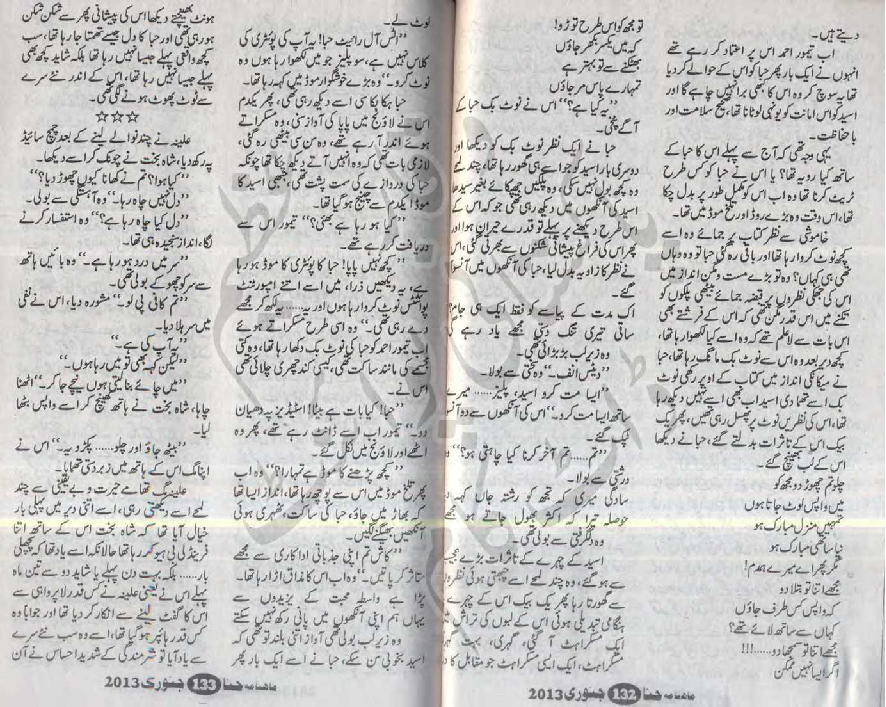 دیتے ہیں۔
اب تیمور احمد اس پر اعتماد کر رہے تھے
انہوں نے ایک بار پھر حبا کو اس کے حوالے کر دیا
تھا یہ سوچ کر وہ اس کا بھی برا نہیں چاہے گا اور
اسید کو اس امانت کو یونہی لوٹانا تھا، صحیح سلامت اور
با حفاظت۔
یہی وجہ تھی کہ آج سے پہلے اس کا حبا کے
ساتھ کیا رویہ تھا؟ یا اس نے حبا کو کس طرح
ٹریٹ کرنا تھا وہ اب اس کو مکمل طور پر بدل چکا
تھا، اس وقت وہ بڑے روڈ اور تلخ موڈ میں تھا۔
خاموشی سے نظر کتاب پر جمائے وہ اسے
کچھ نوٹ کروا رہا تھا اور باقی رہ گئی حبا تو وہ وہاں
تھی ہی کہاں؟ وہ تو بڑے مست و مگن انداز میں
اس کی جھکی نظروں پر قبضہ جمائے بیٹھی پلکوں کو
تکنے میں اس قدر مگن تھی کہ اس کے فرشتے بھی
اس بات سے لاعلم تھے کہ وہ اسے کیا لکھوا رہا تھا،
کچھ دیر بعد وہ اس سے نوٹ بک مانگ رہا تھا، حبا
نے میکانکی انداز میں کتاب کے اوپر رکھی نوٹ
بک اسے تھما دی اسید اب بھی اسے نہیں دیکھ رہا
تھا، اس کی نظریں نوٹ پر پھسل رہی تھیں، پھر یک
بیک اس کے تاثرات بدلتے گئے، حبا نے دیکھا
اس کے لب بھینچ گئے۔
چلو تم چھوڑ دو مجھ کو
میں واپس لوٹ جاتا ہوں
تمہیں منزل مبارک ہو
نیا ساتھی مبارک ہو
مگر پھر اے میرے ہمدم!
مجھے اتنا تو بتلا دو
کہ واپس کس طرف جاؤں
کہاں سے ساتھ لائے تھے؟
مجھے اتنا تو سمجھا دو......!!!
اگر ایسا نہیں ممکن
تو مجھ کو اس طرح توڑو!
کہ میں یکسر بکھر جاؤں
بھٹکنے سے تو بہتر ہے
تمہارے پاس مر جاؤں
”یہ کیا ہے؟“ اس نے نوٹ بک حبا کے
آگے پٹخی۔
حبا نے ایک نظر نوٹ بک کو دیکھا اور
دوسری بار اسید کو جو اسے ہی گھور رہا تھا، چند لمحے
وہ کچھ بول نہیں سکی، وہ پلکیں جھپکائے بغیر سیدھا
اسید کی آنکھوں میں دیکھ رہی تھی جو کہ اس کے
اس طرح دیکھنے پر پہلے تو قدرے حیران ہوا اور
پھر اس کی فراخ پیشانی شکنوں سے بھرتی گئی، اس
نے نظر کا زاویہ بدل لیا، حبا کی آنکھوں میں آنسو آ
گئے۔
اک مدت کے پیاسے کو فقط ایک ہی جام؟
ساقی تیری تنگ دلی مجھے یاد رہے گی
وہ زیر لب بڑبڑائی تھی۔
”دیٹس انف۔“ وہ سختی سے بولا۔
”ایسا مت کرو اسید، پلیز...... میرے
ساتھ ایسا مت کرو۔“ اس کی آنکھوں سے دو آنسو
ٹپک گئے۔
”تم...... تم آخر کرنا کیا چاہتی ہو؟“ وہ
درشتی سے بولا۔
سادگی میری کہ تجھ کو رشتہ جاں کہہ دیا
حوصلہ تیرا کہ اکثر بھول جاتے ہو مجھے
وہ دلگرفتی سے بولی تھی۔
اسید کے چہرے کے تاثرات بڑے عجیب
سے ہو گئے، وہ چند لمحے اسے چبھتی ہوئی نظروں
سے گھورتا رہا پھر یک بیک اس کے چہرے پر
ہنگامی تبدیلی ہوئی اس کے لبوں کی تراش میں
ایک مسکراہٹ آ گئی، گہری، بہت گہری
مسکراہٹ، ایک ایسی مسکراہٹ جو مقابل کا دل
ماہنامہ حنا 132 جنوری 2013
لوٹ لے۔
”اٹس آل رائیٹ حبا! یہ آپ کی پوئٹری کی
کلاس نہیں ہے، سو پلیز جو میں لکھوا رہا ہوں وہ
نوٹ کرو۔“ وہ بڑے خوشگوار موڈ میں کہہ رہا تھا۔
حبا ہکا بکا سی اسے دیکھ رہی تھی، پھر یکدم
اس نے لاؤنج میں پاپا کی آواز سنی، وہ مسکراتے
ہوئے اندر آ رہے تھے، وہ سن سی بیٹھی رہ گئی،
لازمی بات تھی کہ وہ انہیں آتے دیکھ چکا تھا چونکہ
حبا کی دروازے کی سمت پشت تھی، تبھی اسید کا
موڈ ایکدم سے چینج ہو گیا تھا۔
”کیا ہو رہا ہے بھئی؟“ تیمور اس سے
دریافت کر رہے تھے۔
”کچھ نہیں پاپا! حبا کا پوئٹری کا موڈ ہو رہا
ہے، یہ دیکھیں ذرا، میں اسے اتنے امپورٹنٹ
پوائنٹس نوٹ کروا رہا ہوں اور یہ...... یہ لکھ کر مجھے
دے رہی تھی۔“ وہ اسی طرح مسکراتے ہوئے
اب تیمور احمد کو حبا کی نوٹ بک دکھا رہا تھا، وہ کتی
مجسمے کی مانند ساکت تھی، کیسی کند چھری چلائی تھی
اس نے۔
”حبا! کیا بات ہے بیٹا! اسٹڈیز پہ دھیان
دو۔“ تیمور اب اسے ڈانٹ رہے تھے، پھر وہ
اٹھے اور لاؤنج میں نکل گئے۔
”کچھ پڑھنے کا موڈ ہے تمہارا؟“ وہ اب
پھر تلخ موڈ میں اس سے پوچھ رہا تھا، انداز ایسا تھا
کہ بھاڑ میں جاؤ، حبا کی ساکت، ٹھہری ہوئی
آنکھیں بھیگنے لگیں۔
”کاش تم اپنی جذباتی اداکاری سے مجھے
متاثر کر پاتیں۔“ وہ اب اس کا مذاق اڑا رہا تھا۔
پڑا ہے واسطہ محبت کے یزیدوں سے
یہاں ہم اپنی آنکھوں میں پانی رکھ نہیں سکتے
وہ زیر لب بولی تھی آواز اتنی بلند تو تھی کہ
اسید بخوبی سن سکے، حبا نے اسے ایک بار پھر
ہونٹ بھینچتے دیکھا اس کی پیشانی پھر سے شکن شکن
ہو رہی تھی اور حبا کا دل جیسے تھمتا جا رہا تھا، سب
کچھ واقعی پہلے جیسا نہیں رہا تھا بلکہ شاید کچھ بھی
پہلے جیسا نہیں رہا تھا، اس کے اندر نئے سرے
سے ٹوٹ پھوٹ ہونے لگی تھی۔
☆☆☆
علینہ نے چند نوالے لینے کے بعد چمچ سائیڈ
پہ رکھ دیا، شاہ بخت نے چونک کر اسے دیکھا۔
”کیا ہوا؟ تم نے کھانا کیوں چھوڑ دیا؟“
”دل نہیں چاہ رہا۔“ وہ آہستگی سے بولی۔
”دل کیا چاہ رہا ہے؟“ وہ استفسار کرنے
لگا، انداز سنجیدہ ہی تھا۔
”سر میں درد ہو رہا ہے۔“ وہ بائیں ہاتھ
سے سر کو چھو کے بولی تھی۔
”تم کافی پی لو۔“ مشورہ دیا، اس نے نفی
میں سر ہلا دیا۔
”یہ آپ کی ہے۔“
”لیکن کہہ بھی تو میں رہا ہوں۔“
”میں چائے بنا لیتی ہوں نیچے جا کر۔“ اٹھنا
چاہا، شاہ بخت نے ہاتھ کھینچ کر اسے واپس بٹھا
لیا۔
”بیٹھ جاؤ اور چلو...... پکڑو یہ۔“ اس نے
اپنا مگ اس کے ہاتھ میں زبردستی تھمایا۔
علینہ مگ تھامے حیرت و بے یقینی سے چند
لمحے اسے دیکھتی رہی، اسے اتنی دیر میں پہلی بار
خیال آیا تھا کہ شاہ بخت اس کے ساتھ اتنا
فرینڈلی بی ہیو کر رہا تھا حالانکہ اسے یاد تھا کہ پچھلی
بار...... بلکہ بہت دن پہلے یا شاید دو سے تین ماہ
پہلے اس نے یعنی علینہ نے کس قدر لاپرواہی سے
اس کا گفٹ لینے سے انکار کر دیا تھا اور جواباً وہ
کس قدر ہائپر ہو گیا تھا، اسے وہ سب نئے سرے
سے یاد آیا تو شرمندگی کے شدید احساس نے آن
ماہنامہ حنا 133 جنوری 2013